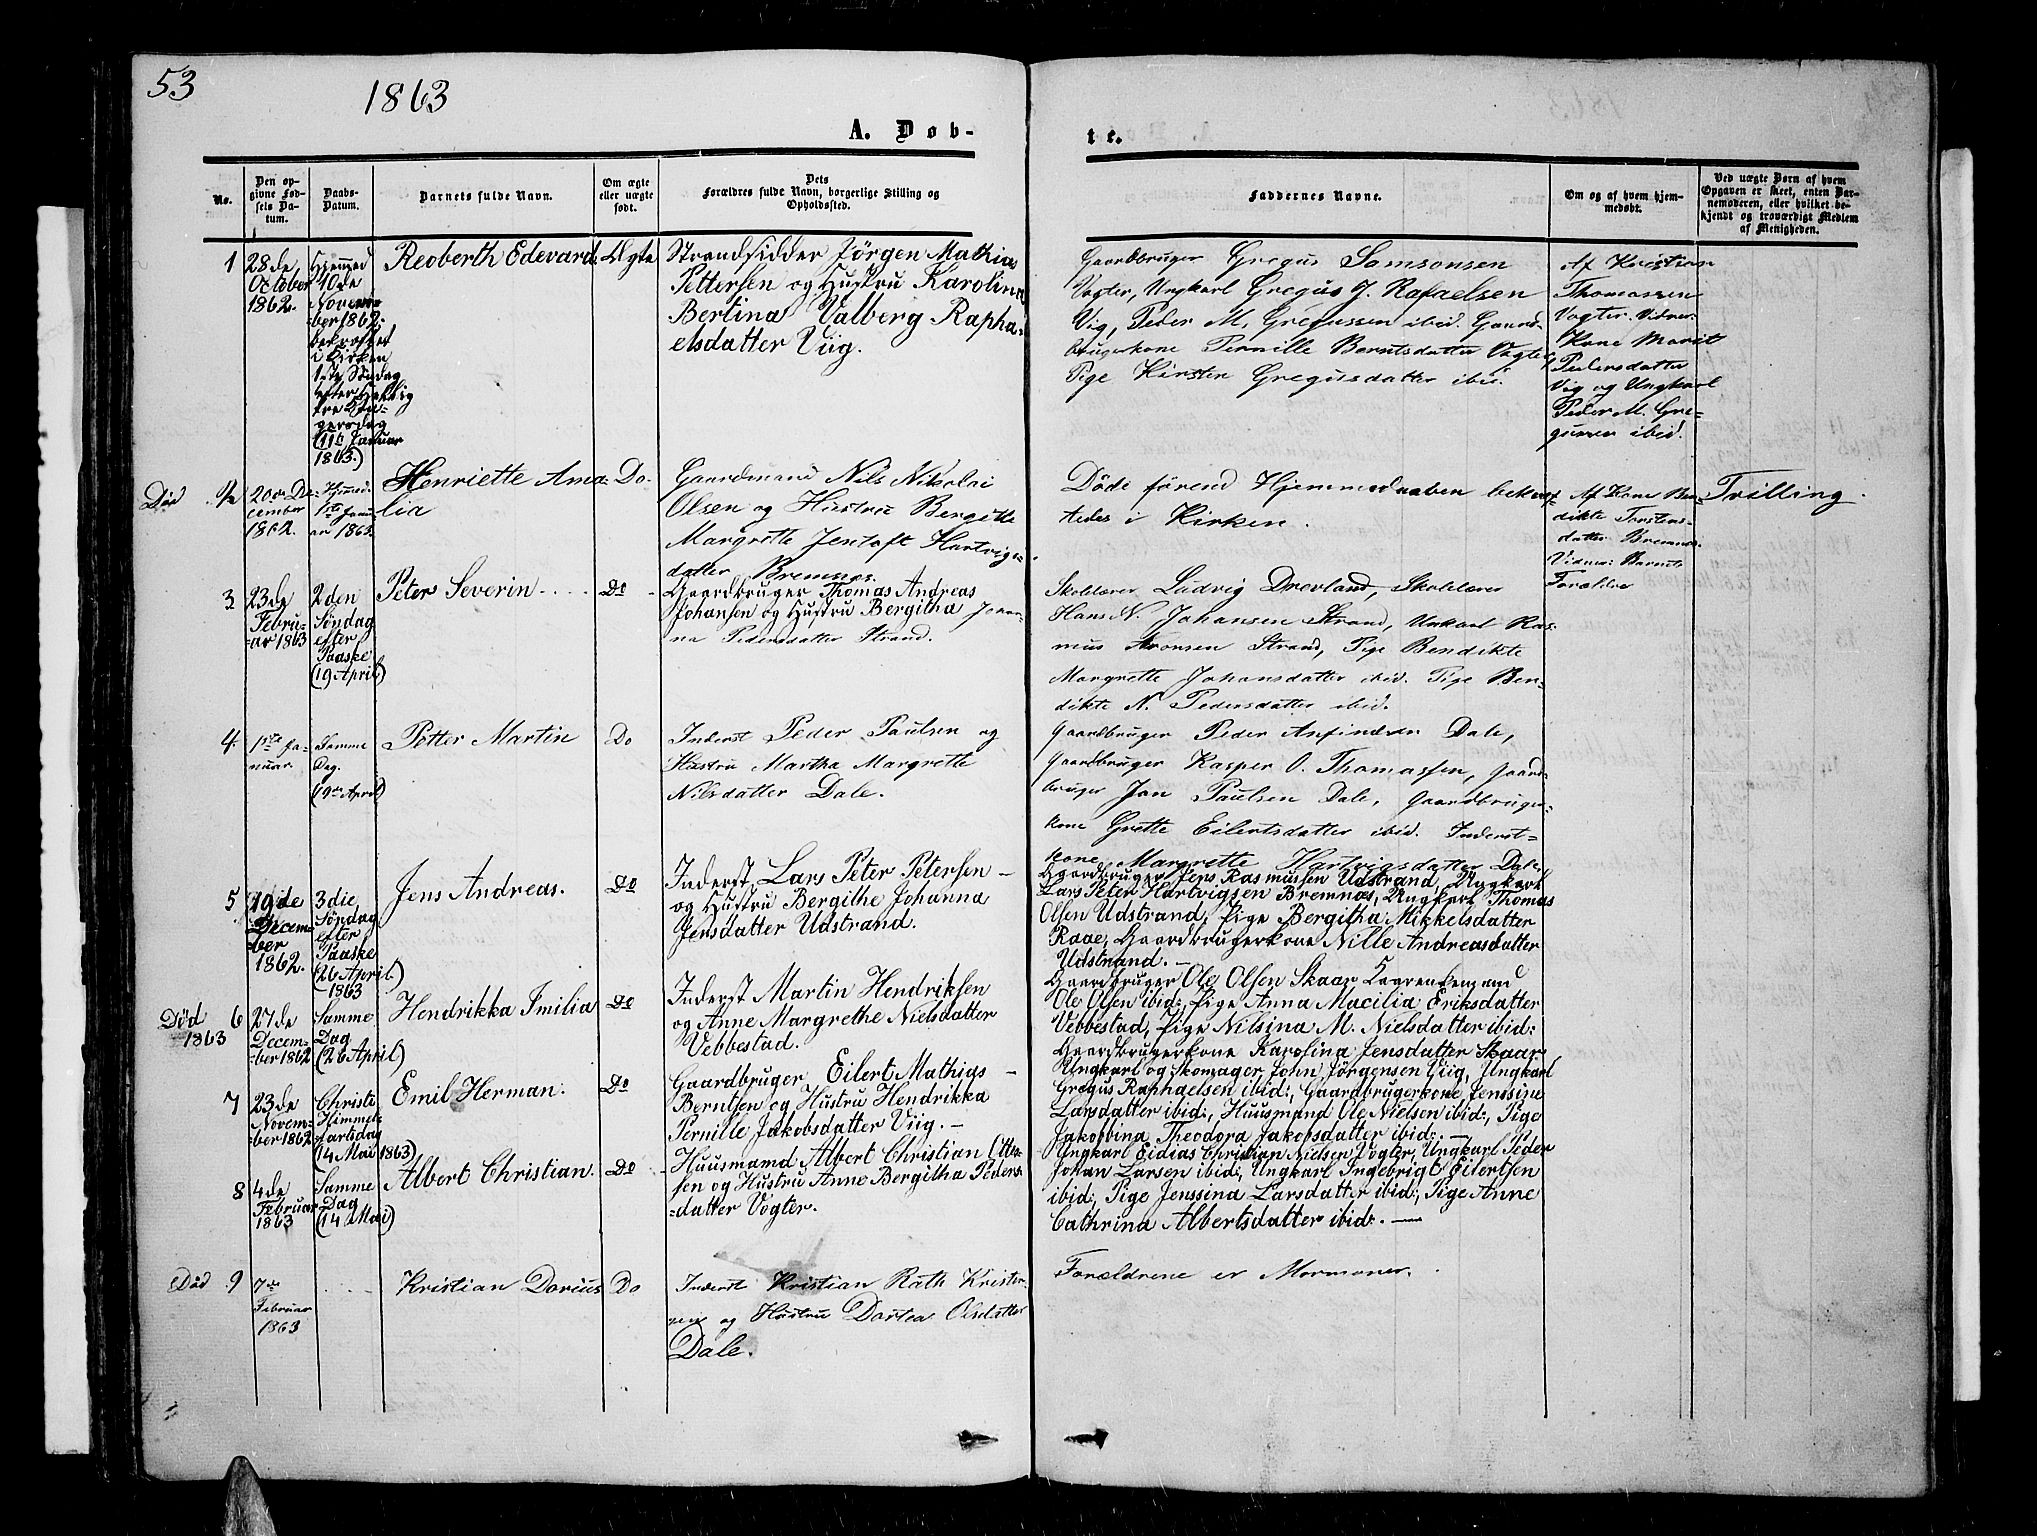 53
1863
A. Døb-
te.
No.
Den op-
givne Fød-
sels Da-
tum.
Daabs-
Datum.
Barnets fulde Navn.
Om ægte
eller uægte
født.
Dets
Forældres fulde Navn, borgerlige Stilling og
Opholdssted.
Faddernes Navne.
Om og af hvem hjem-
medøbt.
Ved uægte Børn af hvem
Opgaven er skeet, enten Bar-
nemoderen, eller hvilket be-
kjendt og troværdigt Medlem
af Menigheden.
1
28de
October
1862.
Hjemmed
10de
Novem-
ber 1862.
bekræftet
i Kirken
1ste Søndag
efter Hellig
tre Kon-
gersdag
(11te Januar
1863.)
Reoberth Edevard
Ægte
Strandsidder Jörgen Mathias
Pettersen og Hustru Karolina
Berlina Valberg Rapha-
elsdatter Viig.
Gaardbruger Gregus Samsonsen
Vogter, Ungkarl Gregus J. Rafaelsen
Vig, Peder M. Gregussen ibid. Gaard-
brugerkone Pernille Berntsdatter Vogter
Pige Kirsten Gregusdatter ibid.
Af Kristian
Thomassen
Vogter. Vidner
Kone Marit
Pedersdatter
Vig og Ungkarl
Peder M. Gre-
gussen ibid.
Död
2
20de De-
cember
1862.
Hjemmed.
1ste Janu-
ar 1863.
Henriette Ama-
lia
Do.
Gaardmand Nils Nikolai
Olsen og Hustru Bergitte
Margrette Jentoft Hartvigs-
datter Bremnes.
Döde förend Hjemmedaaben bekræf-
tedes i Kirken.
Af Kone Ben-
dikte Torstens-
datter Bremnes.
Vidner: Barnets
Forældre
Tvilling.
3
23de
Febru-
ar 1863
2den
Søndag
efter
Paaske
(19 April)
Peter Severin
Do
Gaardbruger Thomas Andreas
Johansen og Hustru Bergitha Johan-
na Pedersdatter Strand.
Skolelærer Ludvig Drevland, Skolelærer
Hans N. Johansen Strand, Unkarl Ras-
mus Aronsen Strand, Pige Bendikte
Margrette Johansdatter ibid. Pige Ben-
dikte N. Pedersdatter ibid.
4.
1ste Ja-
nuar.
Samme
Dag.
(19de April)
Petter Martin
Do
Inderst Peder Paulsen og
Hustru Martha Margrette
Nilsdatter Dale.
Gaardbruger Peder Anfindsen Dale,
Gaardbruger Kasper O. Thomassen, Gaard-
bruger Jon Paulsen Dale, Gaardbruger-
kone Grette Eilertsdatter ibid. Inderst-
kone Margrette Hartvigsdatter Dale.
5
19de
Decem-
ber
1862.
3die
Søndag
efter
Paaske
(26 April)
1863
Jens Andreas.
Do
Inderst Lars Peter Petersen
og Hustru Bergithe Johanna
Jensdatter Udstrand.
Gaardbruger Jens Rasmussen Udstrand, Ungkarl
Lars Peter Hartvigsen Bremnæs, Ungkarl Thomas
Olsen Udstrand, Pige Bergitha Mikkelsdatter
Raae, Gaardbrugerkone Nille Andreasdatter
Udstrand. —
Död
1863
6
27de
Decem-
ber 1862
Samme
Dag
(26 April)
Hendrikka Imilia
Do
Inderst Martin Hendriksen
og Anne Margrethe Nielsdatter
Vebbestad.
Gaardbruger Ole Olsen Skaar
Ole Olsen ibid:, Pige Anna Macilia Eriksdatter
Vebbestad, Pige Nilsina M. Nielsdatter ibid:
Gaardbrugerkone Karolina Jensdatter Skaar
7
23de
Novem-
ber 1862
Christi
Himmel-
fartsdag
(14 Mai 1863)
Emil Herman.
Do
Gaardbruger Eilert Mathias
Berntsen og Hustru Hendrikka
Pernille Jakobsdatter Viig. —
Ungkarl og Skomager John Jörgensen Viig, Ungkarl
Gregus Raphaelsen ibid:, Gaardbrugerkone Jenssine
Larsdatter ibid:, Huusmand Ole Nielsen ibid:, Pige
Jakobbina Theodora Jakobsdatter ibid:. —
8
4de
Februar
1863
Samme
Dag
(14 Mai)
Albert Christian.
Do
Huusmand Albert Christian Otte-
sen og Hustru Anne Bergitha Peders-
datter Vogter.
Ungkarl Eidias Christian Nielsen Vogter, Ungkarl Peder
Johan Larsen ibid:, Ungkarl Ingebrigt Eilertsen
ibid:, Pige Jenssina Larsdatter ibid:, Pige Anne
Cathrina Albertsdatter ibid:. —
Död
9
7de
Februar
1863
Kristian Dorius
Do
Inderst Kristian Rath Kristen-
sen og Hustru Dortea Olsdatter
Dale.
Forældrene er Mormoner.